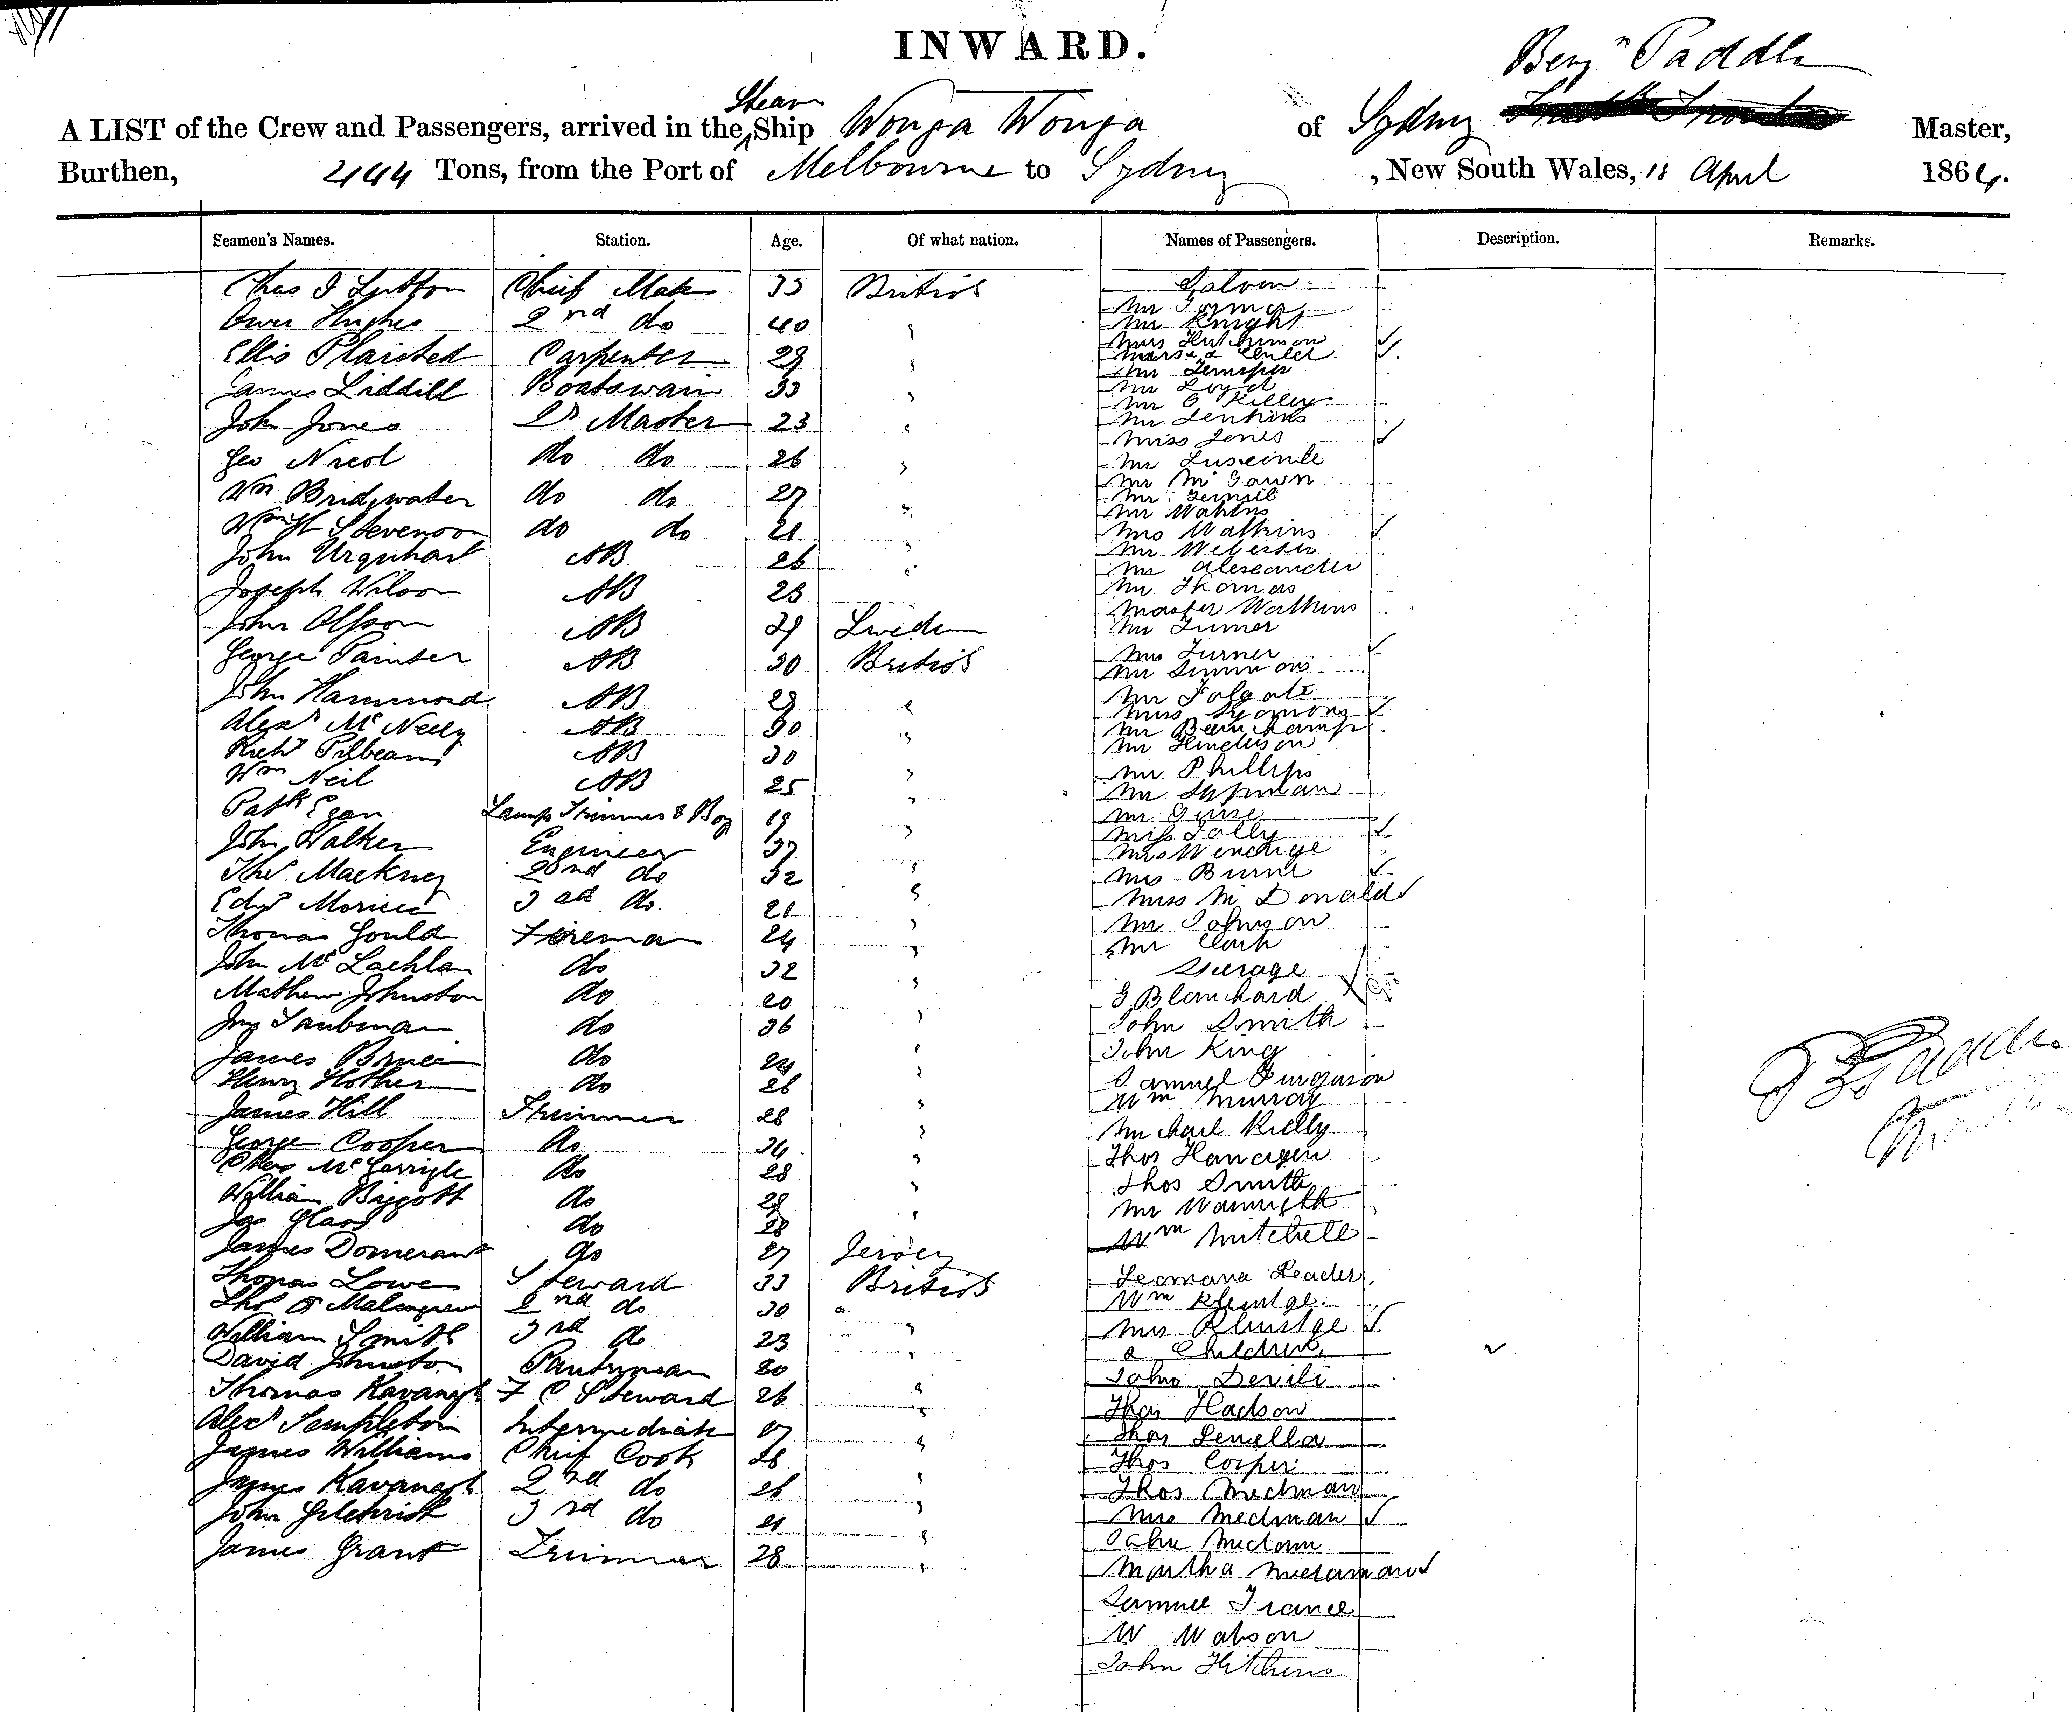 INWARD.
Benjn Paddle
A LIST of the Crew and Passengers, arrived in the Steam Ship Wonga Wonga of Sydney Master,
Burthen, 444 Tons, from the Port of Melbourne to Sydney, New South Wales, 18 April 1864.
Seamen's Names. Station. Age. Of what nation. Names of Passengers. Description. Remarks.
Chas Lutton Chief Mate 33 British
Owen Hughes 2nd do 40 "
Ellis Plaisted Carpenter 29 "
James Liddill Boatswain 33 "
John Jones Qr Master 23 "
Geo Nicol do do 26 "
Wm Bridgwater do do 27 "
Wm H Stevenson do do 21 "
John Urquhart AB 26 "
Joseph Wilson AB 23 "
John Olsson AB 29 Sweden
George Painter AB 30 British
John Hammond AB 29 "
Alexr McNeely AB 30 "
Richd Pilbeam AB 30 "
Wm Neil AB 25 "
Patk Egan Lamp Trimmer & Boy 19 "
John Walker Engineer 37 "
Thos Mackney 2nd do 32 "
Edwd Morice 3rd do 21 "
Thomas Gould Fireman 24 "
John McLachlan do 32 "
Mathew Johnston do 20 "
Jno Taubman do 36 "
James Bruce do 24 "
Henry Hother do 26 "
James Hill Trimmer 28 "
George Cooper do 34 "
Chas McGarrigle do 28 "
William Biggott do 29 "
Jas do 28 "
James Domerant do 27 Jersey
Thomas Lowe Steward 33 British
Thos 2nd do 30 "
William Smith 3rd do 23 "
David Johnston Pantryman 20 "
Thomas Kavanagh F C Steward 26 "
Alexr Templeton Intermediate 17 "
James Williams Chief Cook 28 "
James Kavanagh 2nd do 26 "
John Gilchrist 3rd do 21 "
James Grant Trimmer 28 "
Saloon
Mr
Mr Knight
Mrs Hutchinson
& Child
Mr
Mr Loyd
Mr O Killey
Mr Jenkins
Miss Jones
Mr
Mr McGawn
Mr
Mr Watkins
Mrs Watkins
Mr Webster
Mr Alexander
Mr Thomas
Master Watkins
Mr Turner
Mrs Turner
Mr Simmons
Mr Folgate
Miss Symons
Mr Beauchamp
Mr Henderson
Mr Phillips
Mr Sypman
Mr
Miss Tolly
Mrs
Mrs Burne
Miss McDonald
Mr Johnson
Mr Clark
Steerage
G Blanchard
John Smith
John King
Samuel Furguson
Wm Murray
Michael Kielly
Thos Hanagen
Thos Smith
Mr
Wm Mitchell
Leader
Wm
Mrs
2 Children
John Devili
Thos Hadson
Thos
Thos Cooper
Thos Medman
Mrs Medman
John
Martha
Samuel France
W Watson
John Hitchens